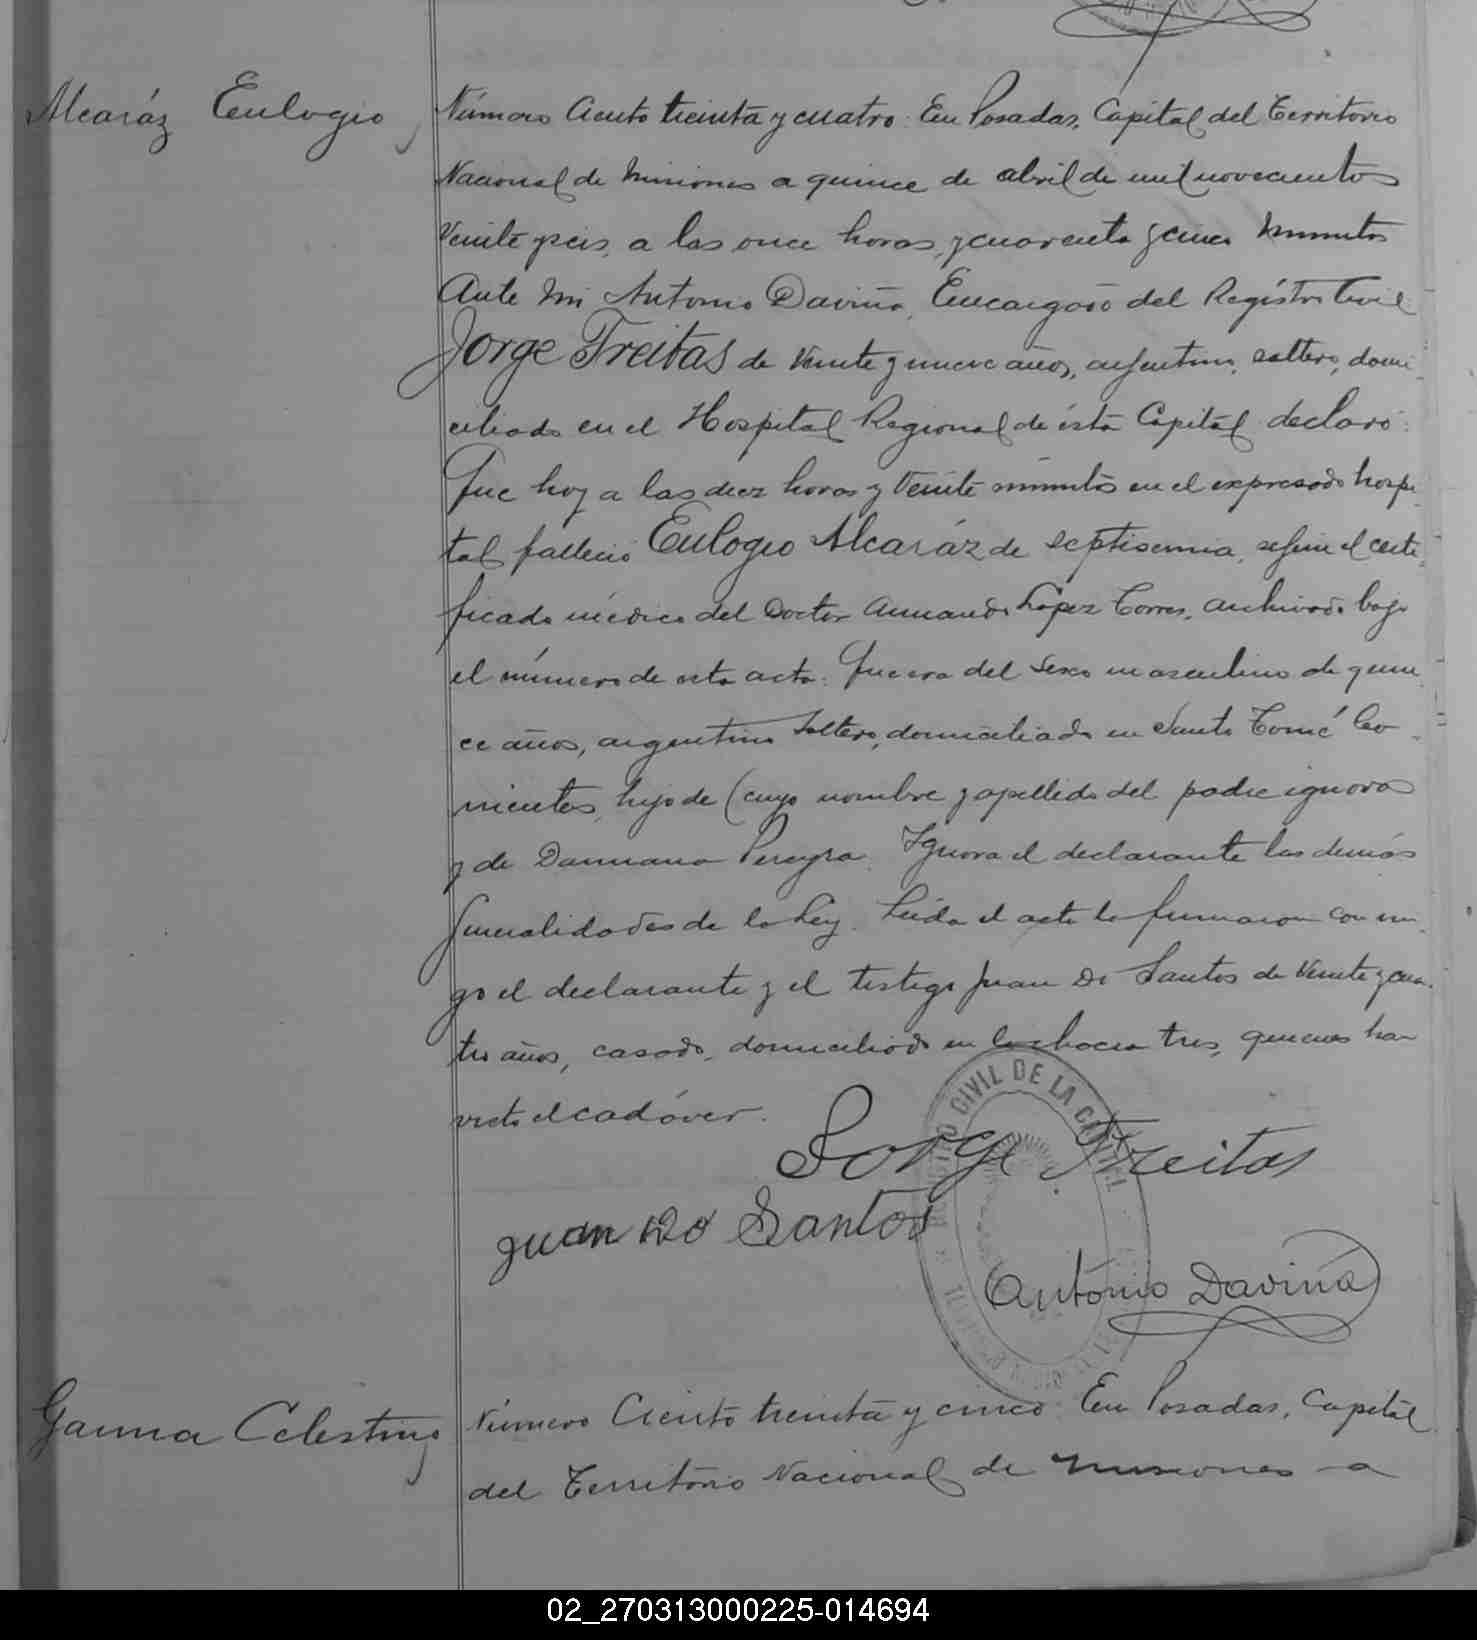 Alcaráz Eulogio
Número Ciento treinta y cuatro: En Posadas, Capital del Territorio
Nacional de Misiones a quince de abril de mil novecientos
veinte y seis, a las once horas, y cuarenta y cinco minutos
Ante mi Antonio Daviña, Encargado del Registro Civil
Jorge Freitas de veinte y nueve años, argentino, soltero, domi-
ciliado en el Hospital Regional de ésta Capital declaró:
Que hoy a las diez horas y veinte minutos en el expresado hospi-
tal falleció Eulogio Alcaráz de septisemia, según el certi-
ficado médico del Doctor Armando López Torres, archivado bajo
el número de esta acta: Que era del sexo masculino de quin-
ce años, argentino soltero, domiciliado en Santo Tomé Co-
rrientes, hijo de (cuyo nombre y apellido del padre ignora
y de Damiana Pereyra. Ignora el declarante las demás
generalidades de la Ley. Leída el acta la firmaron conmi-
go el declarante y el testigo Juan Do Santos de veinte y cua-
tro años, casado, domiciliado en la chacra tres, quienes han
visto el cadáver.
Jorge Freitas
Juan Do Santos
REGISTRO CIVIL DE LA CAPITAL
Antonio Daviña
Gauna Celestino
Número Ciento treinta y cinco: En Posadas, Capital
del Territorio Nacional de Misiones a
02_270313000225-014694